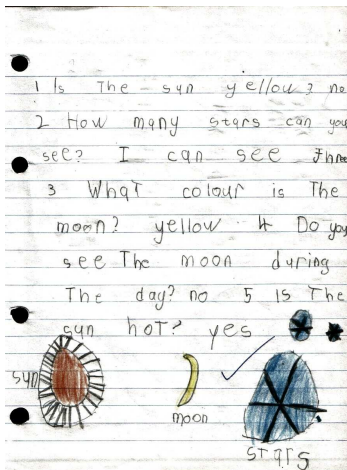 1 Is The sun yellow? no
2 How many stars can you
see? I can see three
3 What colour is The
moon? yellow 4 Do you
see The moon during
The day? no 5 Is The
sun hot? yes
sun
moon
stars